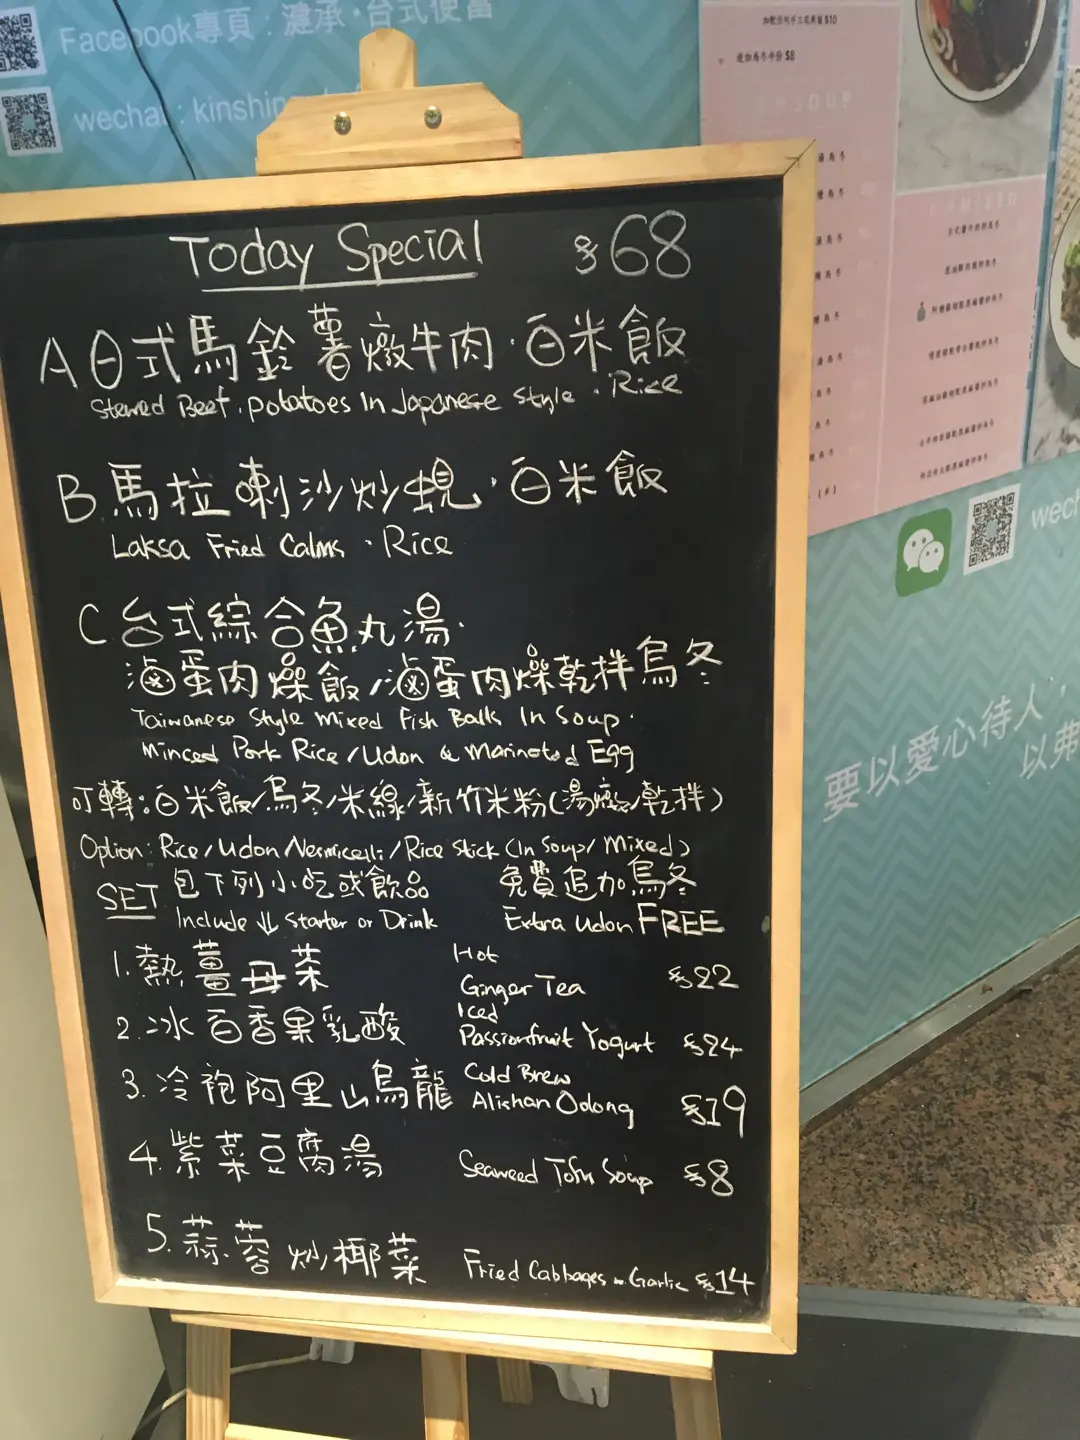 Facebook專頁：濰承·台式便當
wechat : kinship
Today Special $68
A 日式馬鈴薯燉牛肉·白米飯
Stewed Beef, potatoes In Japanese Style · Rice
B.馬拉喇沙炒蜆·白米飯
Laksa Fried Calms · Rice
C 台式綜合魚丸湯·
滷蛋肉燥飯/滷蛋肉燥乾拌烏冬
Taiwanese Style Mixed Fish Balls In Soup·
Minced Pork Rice/Udon & Marinated Egg
可轉:白米飯/烏冬/米線/新竹米粉(湯/乾拌)
Option: Rice/Udon/Vermicelli/Rice Stick (In Soup/Mixed)
SET 包下列小吃或飲品 免費追加烏冬
Include ↓ Starter or Drink Extra Udon FREE
1.熱薑母茶 Hot Ginger Tea $22
2.冰百香果乳酸 Iced Passionfruit Yogurt $24
3.冷袍阿里山烏龍 Cold Brew Alishan Oolong $19
4.紫菜豆腐湯 Seaweed Tofu Soup $8
5.蒜蓉炒椰菜 Fried Cabbages w Garlic $14
SOUP
MIXED
wech
要以愛心待人，
以弗